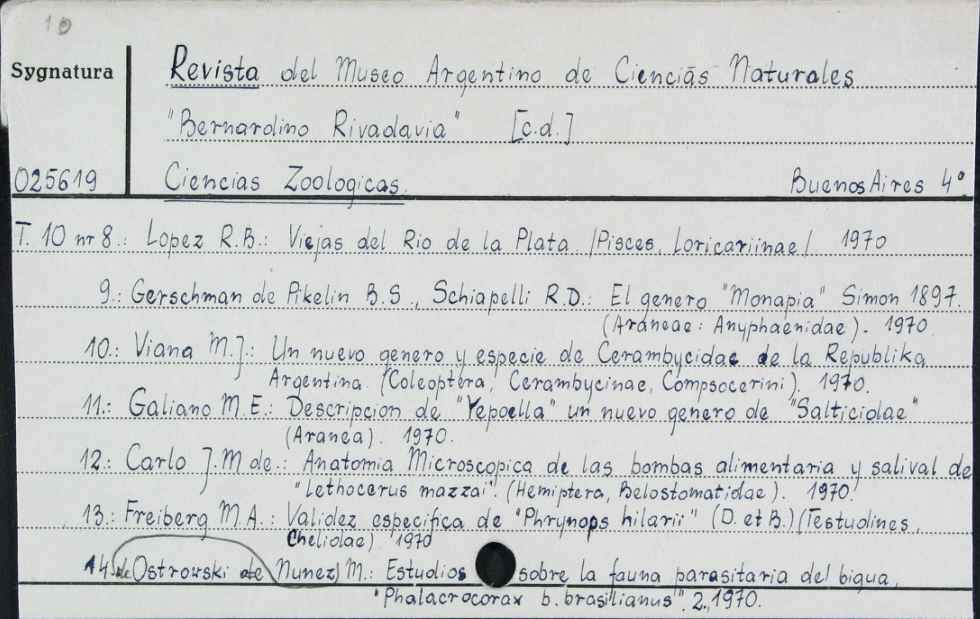 10
Sygnatura
Revista del Museo Argentino de Ciencias Naturales
"Bernardino Rivadavia" [c.d.]
025619
Ciencias Zoologicas.
Buenos Aires 4°
T. 10 nr 8.: Lopez R.B.: Viejas del Rio de la Plata /Pisces, Loricariinae/ 1970
9.: Gerschman de Pikelin B.S., Schiapelli R.D.: El genero "Monapia" Simon 1897.
(Araneae: Anyphaenidae). 1970.
10.: Viana M.J.: Un nuevo genero y especie de Cerambycidae de la Republika
Argentina. (Coleoptera, Cerambycinae, Compsocerini). 1970.
11.: Galiano M.E.: Descripcion de "Yepoella" un nuevo genero de "Salticiolae"
(Aranea). 1970.
12.: Carlo J.M de.: Anatomia Microscopica de las bombas alimentaria y salival de
"Lethocerus mazzai". (Hemiptera, Belostomatidae). 1970.
13.: Freiberg M.A.: Validez especifica de "Phrynops hilarii" (D. et B.) (Testudines,
Cheliolae) 1970
14. de Ostrowski de Nunez M.: Estudios sobre la fauna parasitaria del bigua,
"Phalacrocorax b. brasilianus". 2., 1970.